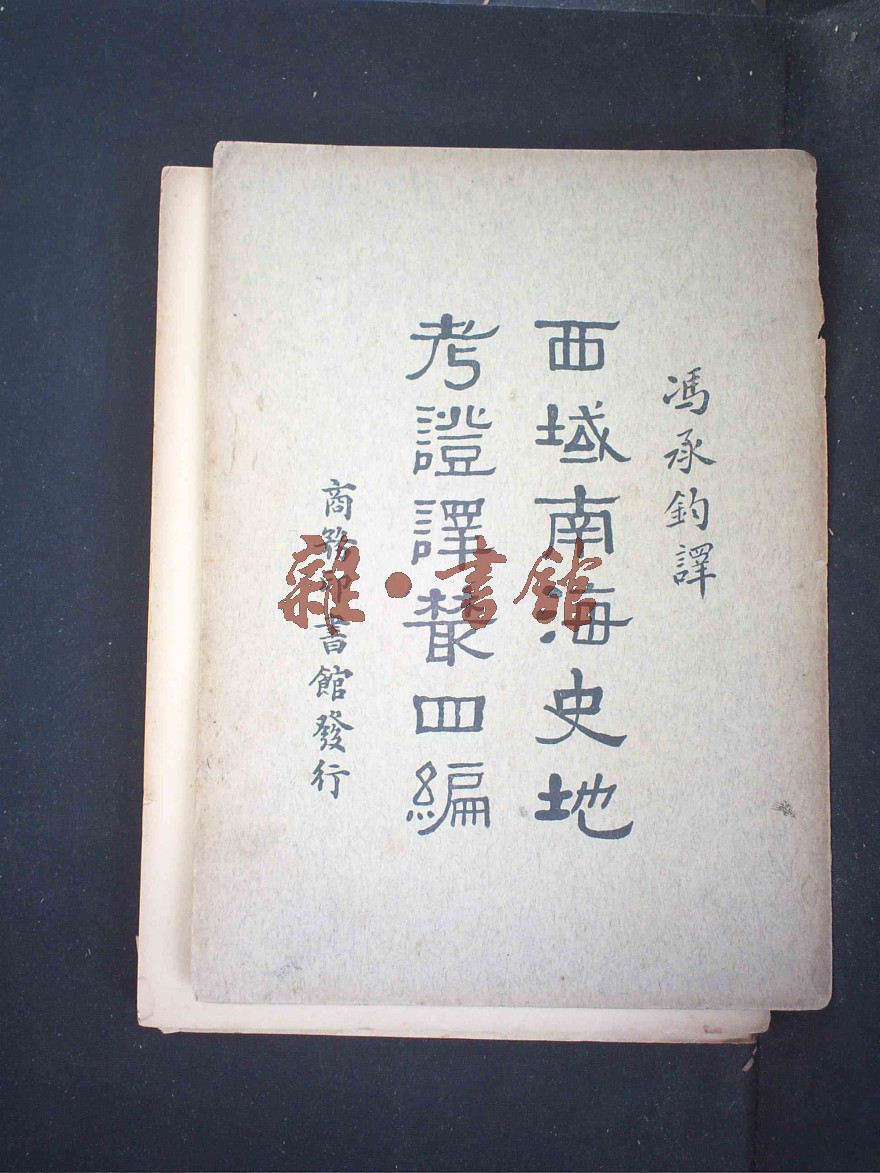 馮承鈞譯
西域南海史地
考證譯叢四編
商務印書館發行
雜·書館